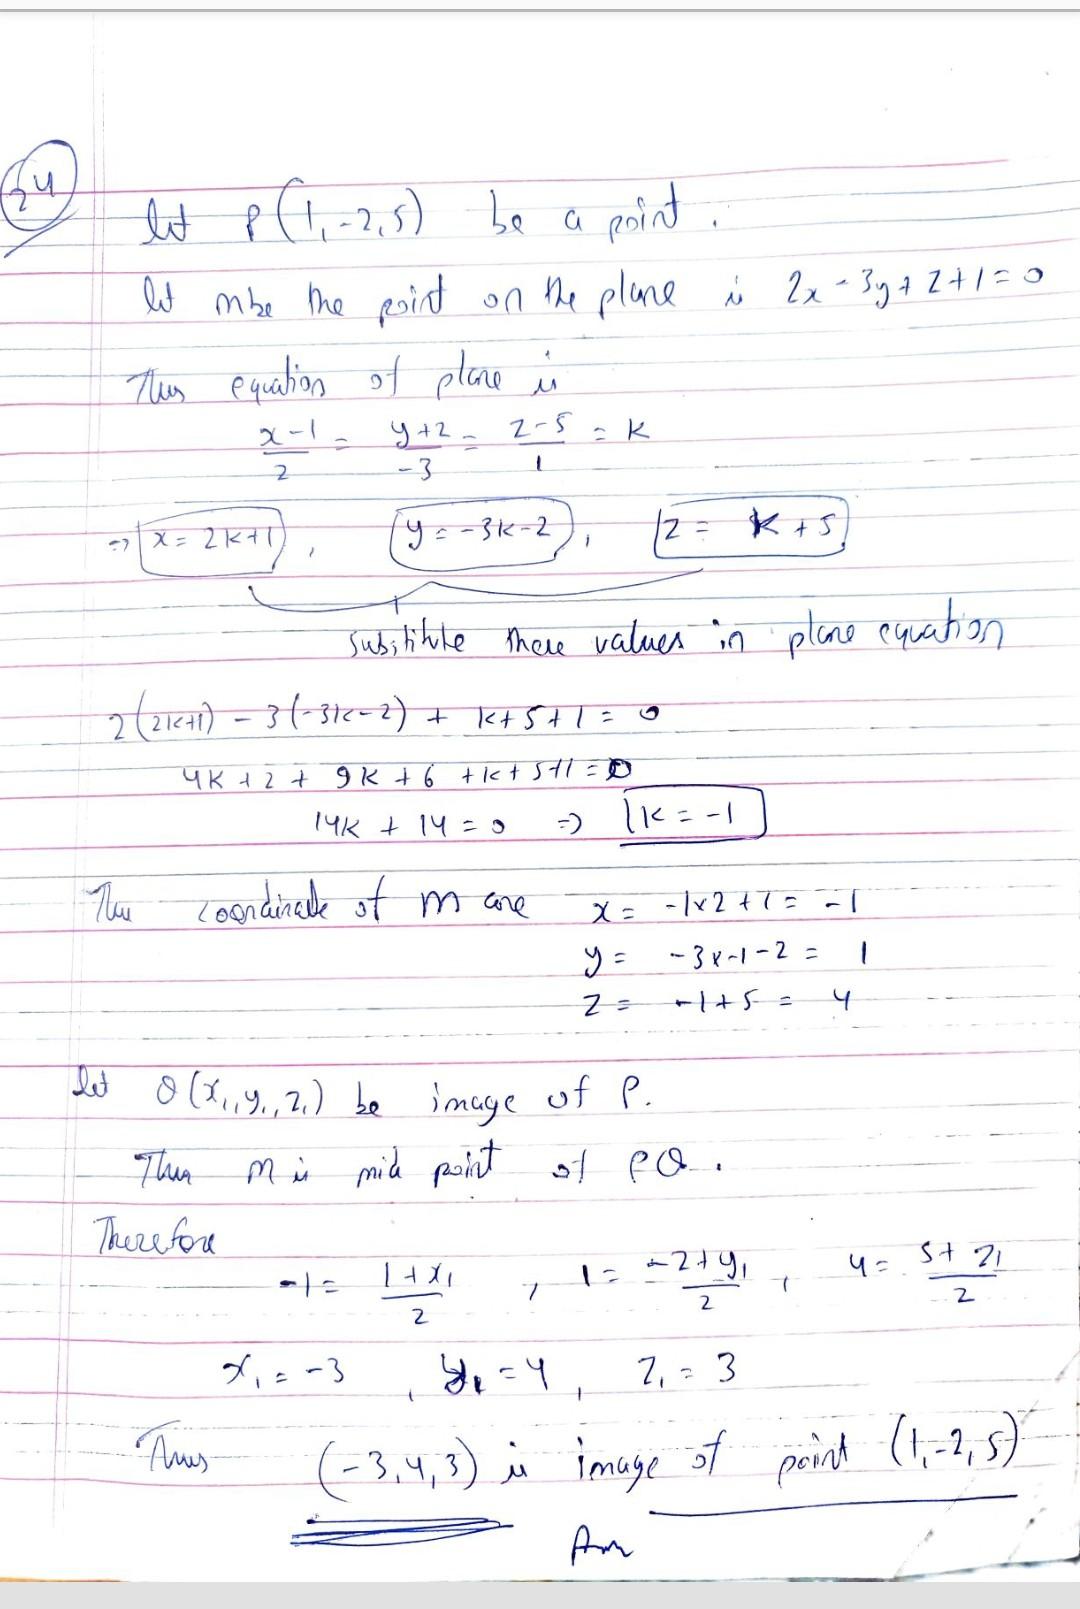 24
let P(1,-2,5) be a point.
let m be the point on the plane is 2x-3y+z+1=0
Thus equation of plane is
x-1/2 = y+2/-3 = z-5/1 = k
=> x = 2k+1, y = -3k-2, z = k+5
substitute these values in plane equation
2(2k+1) - 3(-3k-2) + k+5+1 = 0
4k+2+9k+6+k+5+1=0
14k + 14 = 0 => k = -1
The coordinate of m are x = -1x2+1 = -1
y = -3x-1-2 = 1
z = -1+5 = 4
let Q(x₁,y₁,z₁) be image of P.
Then m is mid point of PQ.
Therefore
-1 = 1+x₁/2, 1 = -2+y₁/2, 4 = 5+z₁/2
x₁ = -3, y₁ = 4, z₁ = 3
Thus (-3,4,3) is image of point (1,-2,5)
Ans